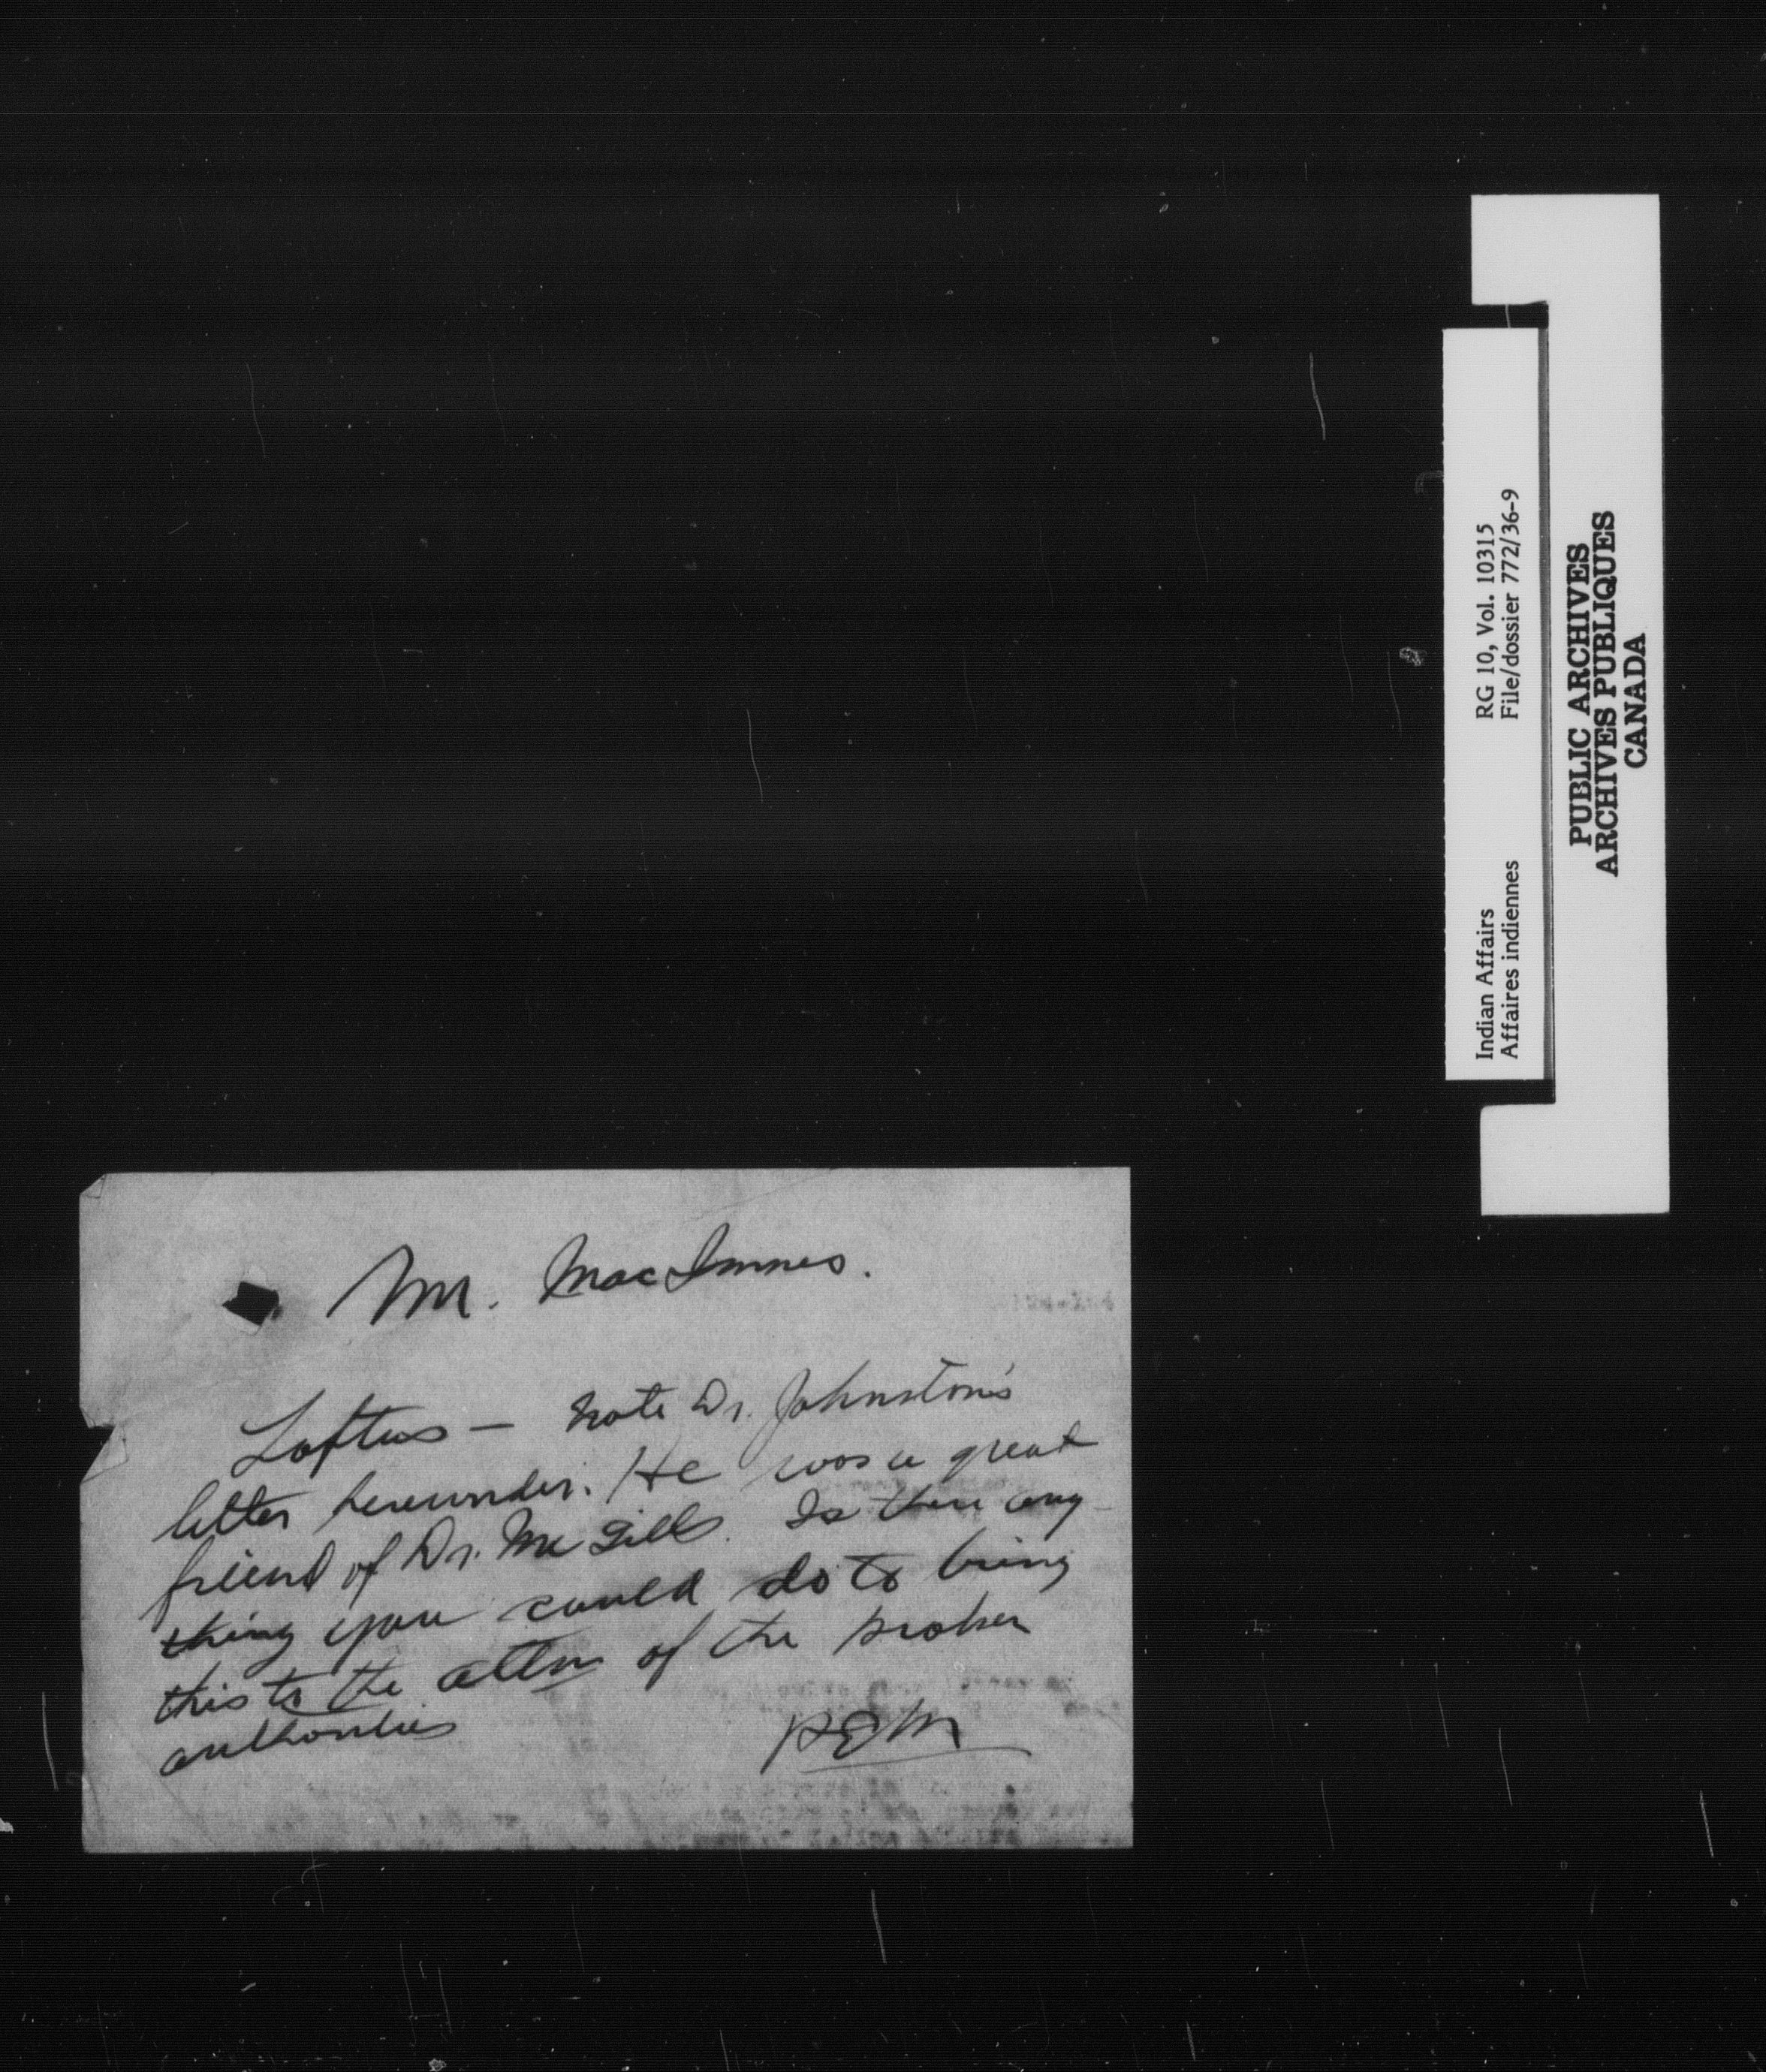 Mr. MacInnes.
Loftus — Note Dr. Johnston's
letter hereunder. He was a great
friend of Dr. McGill's. Is there any-
thing you could do to bring
this to the attn of the proper
authorities
REM
Indian Affairs RG 10, Vol. 10315
Affaires indiennes File/dossier 772/36-9
PUBLIC ARCHIVES
ARCHIVES PUBLIQUES
CANADA